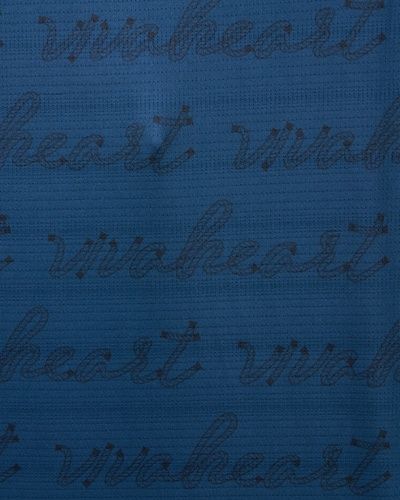 vivaheart
heart vivaheart
t vivaheart
heart vivaheart
t vivaheart